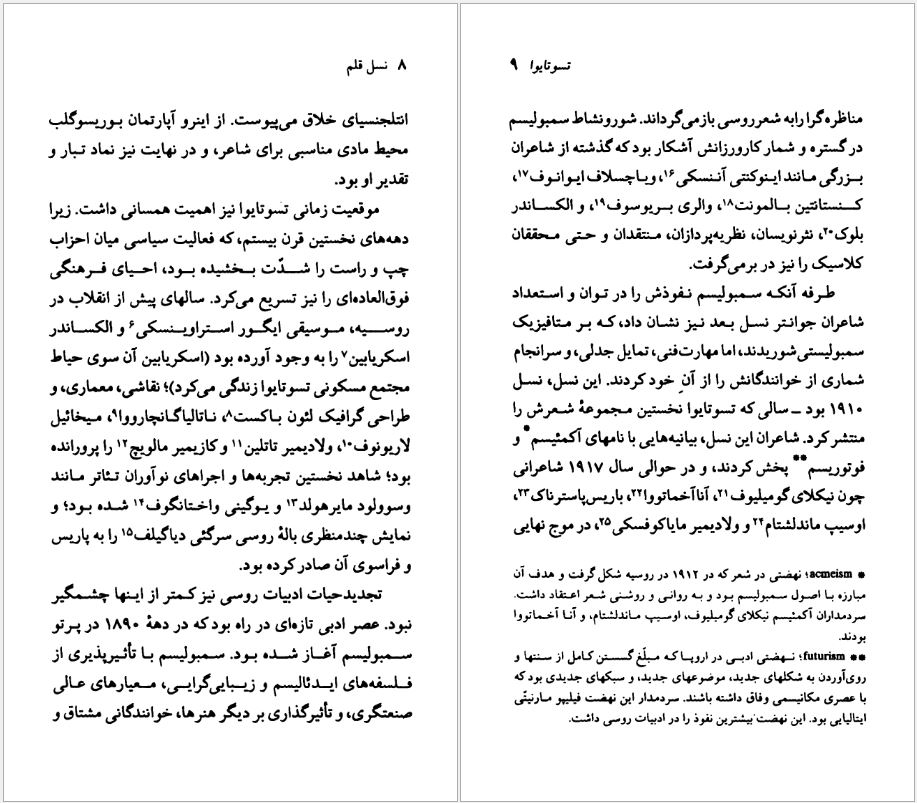 ۸ نسل قلم
انتلجنسیای خلاق می‌پیوست. از اینرو آپارتمان بوریسوگلب
محیط مادی مناسبی برای شاعر، و در نهایت نیز نماد تبار و
تقدیر او بود.
موقعیت زمانی تسوتایوا نیز اهمیت همسانی داشت. زیرا
دهه‌های نخستین قرن بیستم، که فعالیت سیاسی میان احزاب
چپ و راست را شدّت بخشیده بود، احیای فرهنگی
فوق‌العاده‌ای را نیز تسریع می‌کرد. سالهای پیش از انقلاب در
روسیه، موسیقی ایگور استراوینسکی۶ و الکساندر
اسکریابین۷ را به وجود آورده بود (اسکریابین آن سوی حیاط
مجتمع مسکونی تسوتایوا زندگی می‌کرد)؛ نقاشی، معماری، و
طراحی گرافیک لئون باکست۸، ناتالیاگانچارووا۹، میخائیل
لاریونوف۱۰، ولادیمیر تاتلین۱۱ و کازیمیر مالویچ۱۲ را پرورانده
بود؛ شاهد نخستین تجربه‌ها و اجراهای نوآوران تئاتر مانند
وسوولود مایرهولد۱۳ و یوگینی واختانگوف۱۴ شده بود؛ و
نمایش چندمنظری بالهٔ روسی سرگئی دیاگیلف۱۵ را به پاریس
و فراسوی آن صادر کرده بود.
تجدیدحیات ادبیات روسی نیز کمتر از اینها چشمگیر
نبود. عصر ادبی تازه‌ای در راه بود که در دههٔ ۱۸۹۰ در پرتو
سمبولیسم آغاز شده بود. سمبولیسم با تأثیرپذیری از
فلسفه‌های ایدئالیسم و زیبایی‌گرایی، معیارهای عالی
صنعتگری، و تأثیرگذاری بر دیگر هنرها، خوانندگانی مشتاق و
تسوتایوا ۹
مناظره‌گرا را به شعر روسی بازمی‌گرداند. شور و نشاط سمبولیسم
در گستره و شمار کارورزانش آشکار بود که گذشته از شاعران
بزرگی مانند اینوکنتی آننسکی۱۶، ویاچسلاف ایوانوف۱۷،
کنستانتین بالمونت۱۸، والری بریوسوف۱۹، و الکساندر
بلوک۲۰، نثرنویسان، نظریه‌پردازان، منتقدان و حتی محققان
کلاسیک را نیز در برمی‌گرفت.
طرفه آنکه سمبولیسم نفوذش را در توان و استعداد
شاعران جوانتر نسل بعد نیز نشان داد، که بر متافیزیک
سمبولیستی شوریدند، اما مهارت فنی، تمایل جدلی، و سرانجام
شماری از خوانندگانش را از آنِ خود کردند. این نسل، نسل
۱۹۱۰ بود ــ سالی که تسوتایوا نخستین مجموعهٔ شعرش را
منتشر کرد. شاعران این نسل، بیانیه‌هایی با نامهای آکمئیسم* و
فوتوریسم** پخش کردند، و در حوالی سال ۱۹۱۷ شاعرانی
چون نیکلای گومیلیوف۲۱، آنا آخماتووا۲۲، باریس پاسترناک۲۳،
اوسیپ ماندلشتام۲۴ و ولادیمیر مایاکوفسکی۲۵، در موج نهایی
* acmeism؛ نهضتی در شعر که در ۱۹۱۲ در روسیه شکل گرفت و هدف آن
مبارزه با اصول سمبولیسم بود و به روانی و روشنی شعر اعتقاد داشت.
سردمداران آکمئیسم نیکلای گومیلیوف، اوسیپ ماندلشتام، و آنا آخماتووا
بودند.
** futurism؛ نهضتی ادبی در اروپا که مبلّغ گسستن کامل از سنتها و
روی‌آوردن به شکلهای جدید، موضوعهای جدید، و سبکهای جدیدی بود که
با عصری مکانیسمی وفاق داشته باشند. سردمدار این نهضت فیلیپو مارنیتّی
ایتالیایی بود. این نهضت بیشترین نفوذ را در ادبیات روسی داشت.